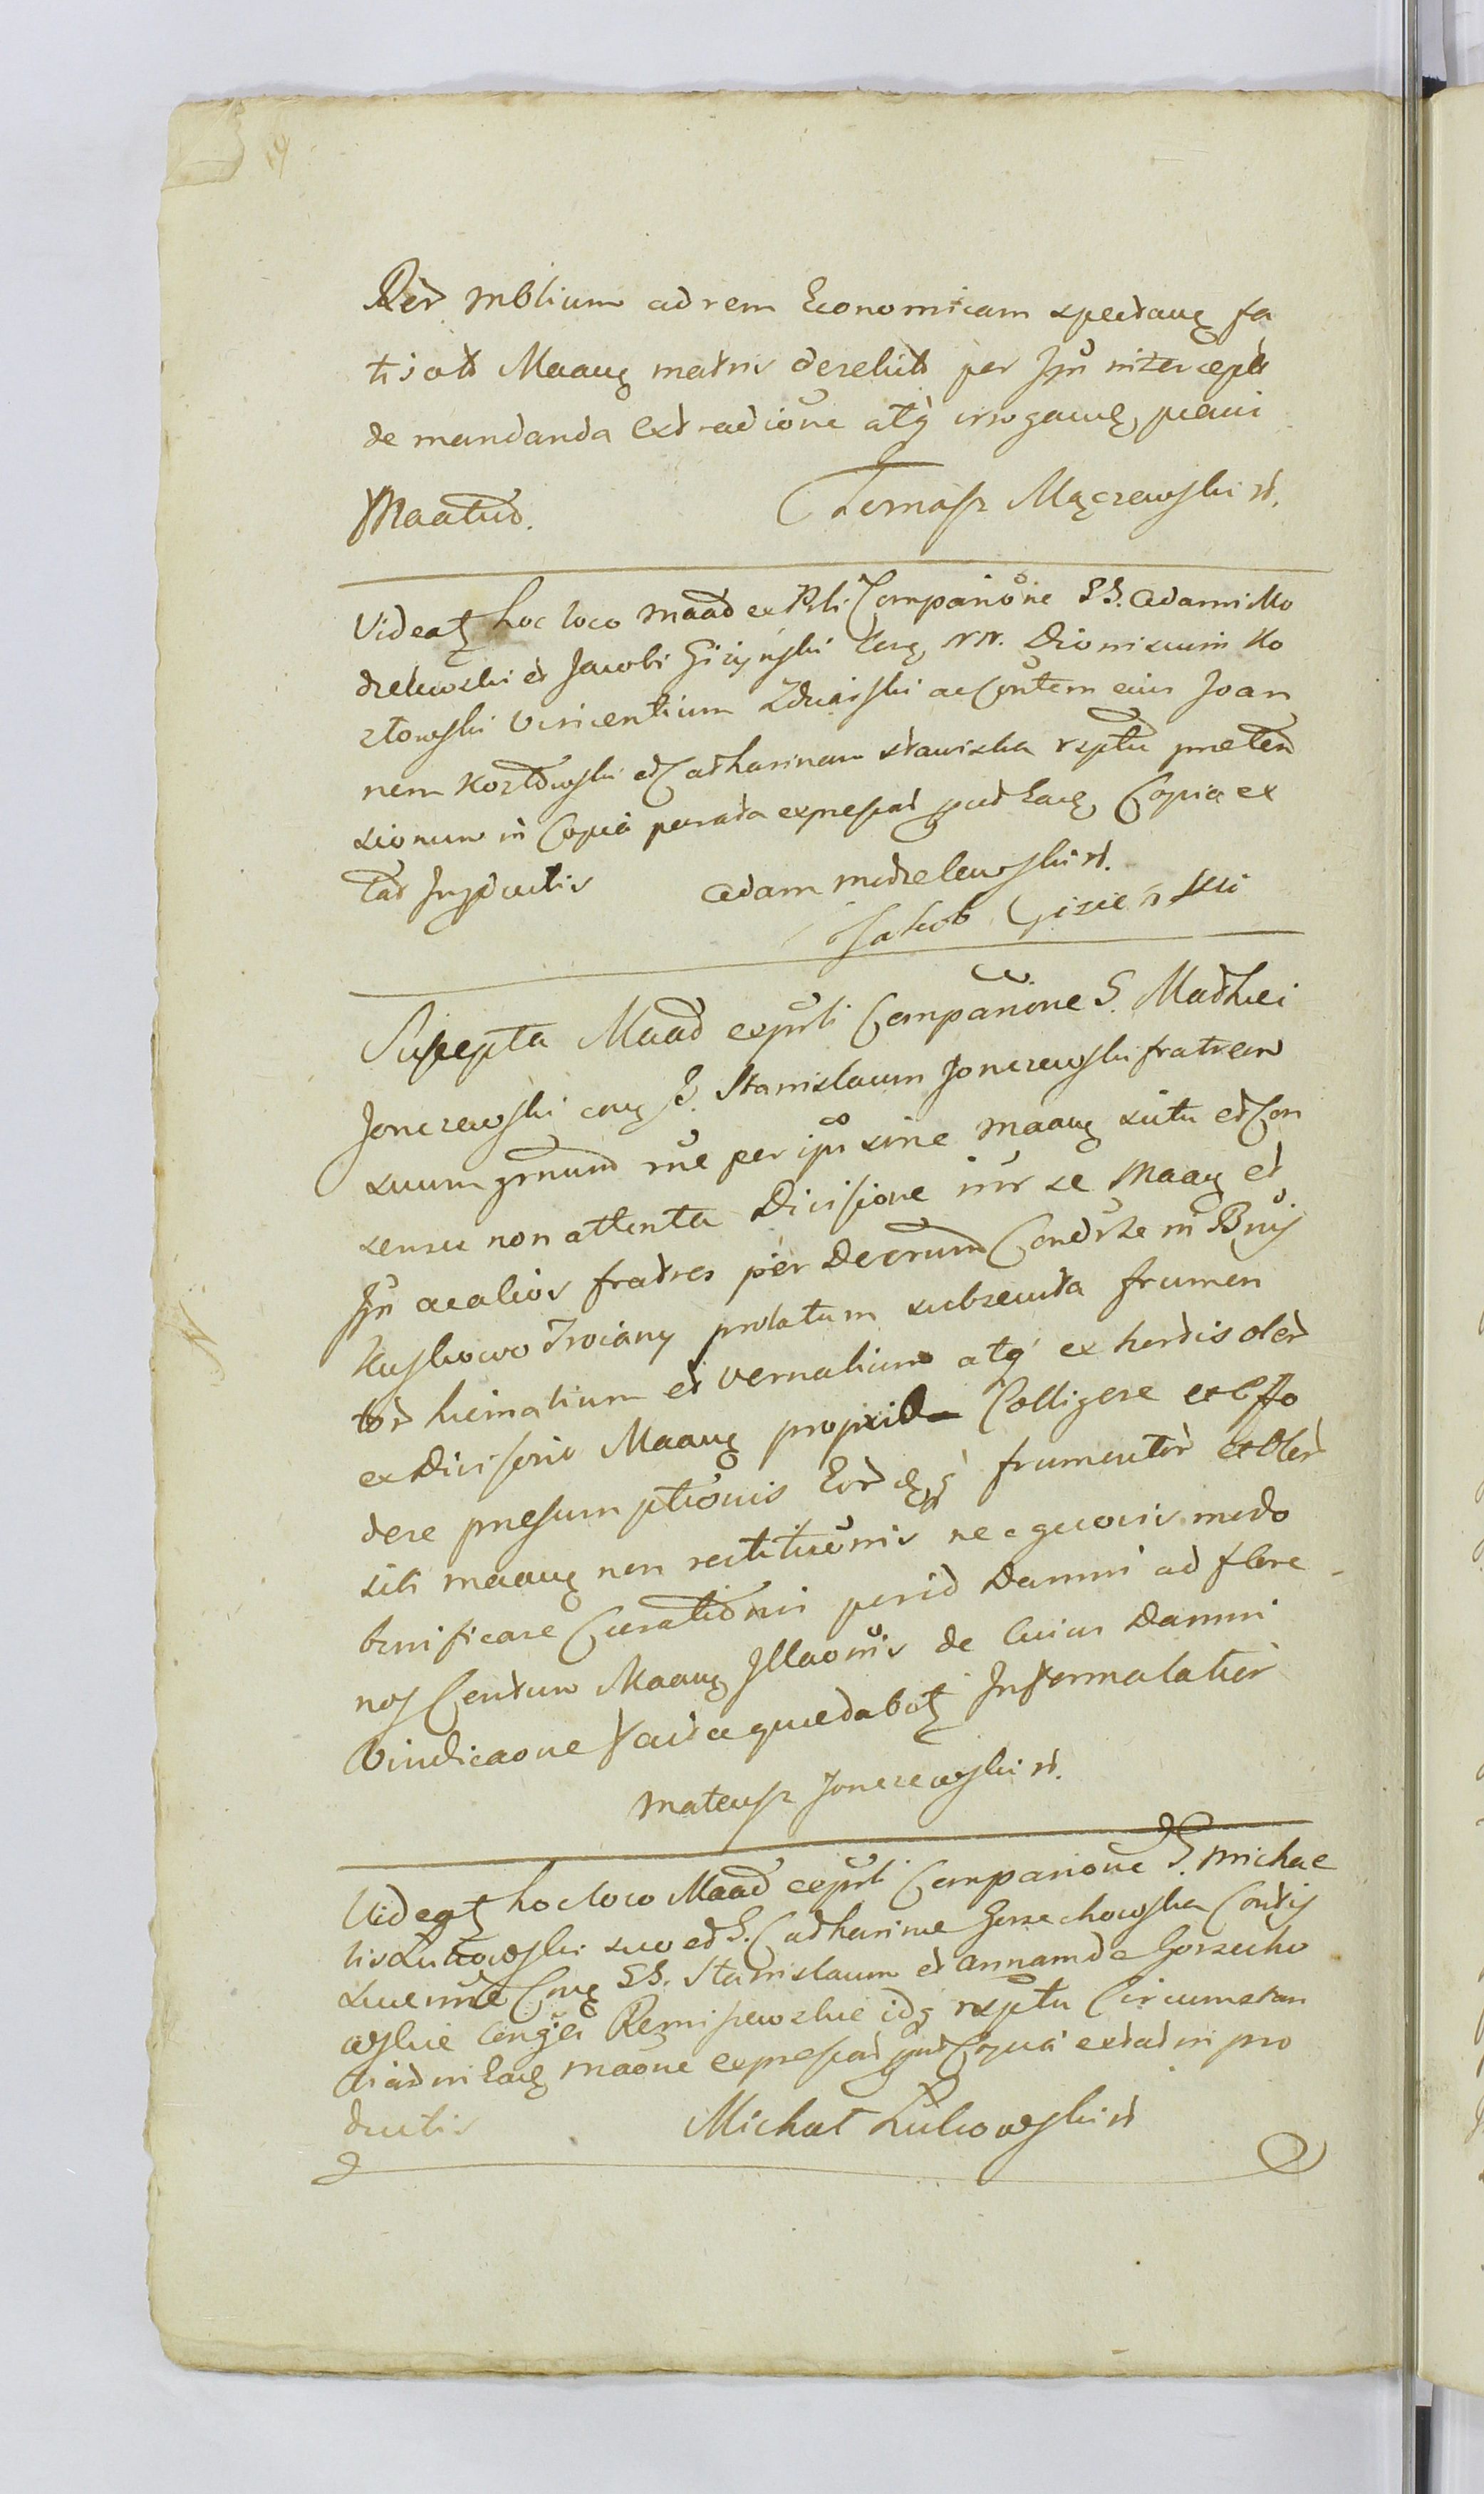 Rer mblium ad rem Economicam spectang fa
tisats Maang matris derelict per Jpn intercept
de mandanda extradicione atq irrogaue, praeui
Maatus. Tomasz Mączewski st.
Videatz hoc loco Maad ex Pbli Comparicione SS. Adami Mo
dzelewski et Jacobi Giżyński Corg NN. Dionisium Ko
złowski Vincentium Zdziarski ac Contem eius Joan
nem Kozłowski et Catharinam stawiska rsptu preten
sionum in Copia parata expressat pud Eang, Copia ex
tat Inproductis Adam modzelewski st.
Jakob Gizienski
Suscepta Maad expnti Comparione S. Mathei
Jonczewski cong S. Stanislaum Jonczewski fratrem
suum grnum rne per ipn sine Maang scitu et Con
sensu non attenta Divisione intr se Maang et
Jpn ac alios fratres per Decrum Condrze in Bnis
Kuskowo Troiany prolatum subsecuta frumen
tor hiematium et vernalium atq ex hortis oler
ex Divisorio Maang propriis Colligere et effo
dere presumptionis Eor frumentor et Oler
sibi Maang non restitucionis nec quovis modo
bonificare Curationis perid Damni ad flore
nos Centum Maang Illaonis de Cuius Damni
Vindicaone facta quedabatz Informalatior
Mateusz Jonczewski st.
Videatz hoc loco Maad expnti Comparione S. Michae
lis Lukowski suo et S. Catharine Gorzechowska Contis
sue nne Cong SS. Stanislaum et annam de Gorzecho
wskie Conges Remiszewskie idq rsptu Circumstan
tiar in Eang Maone expressat pud Copia extat in pro
ductis Michał Łukowski st